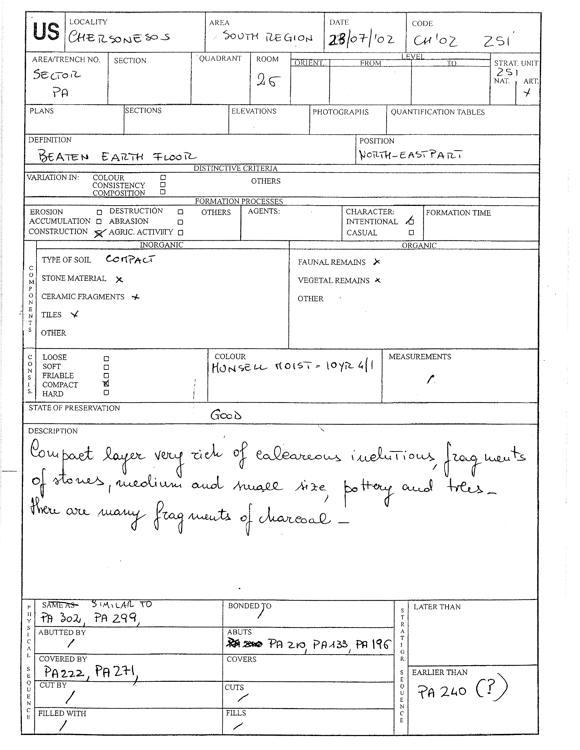 US
LOCALITY
CHERSONESOS
AREA
SOUTH REGION
DATE
23/07/'02
CODE
CH'02 251
AREA/TRENCH NO.
SECTOR
PA
SECTION
QUADRANT
ROOM
26
LEVEL
ORIENT. FROM TO
STRAT. UNIT
251
NAT. ART.
x
PLANS
SECTIONS
ELEVATIONS
PHOTOGRAPHS
QUANTIFICATION TABLES
DEFINITION
BEATEN EARTH FLOOR
POSITION
NORTH-EAST PART
DISTINCTIVE CRITERIA
VARIATION IN: COLOUR
CONSISTENCY
COMPOSITION
OTHERS
FORMATION PROCESSES
EROSION DESTRUCTION OTHERS
ACCUMULATION ABRASION
CONSTRUCTION x AGRIC. ACTIVITY
AGENTS:
CHARACTER:
INTENTIONAL
CASUAL
FORMATION TIME
COMPONENTS
INORGANIC
TYPE OF SOIL COMPACT
STONE MATERIAL x
CERAMIC FRAGMENTS x
TILES x
OTHER
ORGANIC
FAUNAL REMAINS x
VEGETAL REMAINS x
OTHER
CONSIS.
LOOSE
SOFT
FRIABLE
COMPACT x
HARD
COLOUR
MUNSELL MOIST = 10YR 4/1
MEASUREMENTS
/
STATE OF PRESERVATION
GOOD
DESCRIPTION
Compact layer very rich of calcareous inclutious, fragments
of stones, medium and small size, pottery and tiles_
there are many fragments of charcoal_
PHYSICAL SEQUENCE
SAME AS SIMILAR TO
PA 302, PA 299,
BONDED TO
/
ABUTTED BY
/
ABUTS
PA 210, PA 133, PA 196
COVERED BY
PA222, PA271,
COVERS
CUT BY
/
CUTS
/
FILLED WITH
/
FILLS
/
STRATIGR. SEQUENCE
LATER THAN
EARLIER THAN
PA 240 (?)